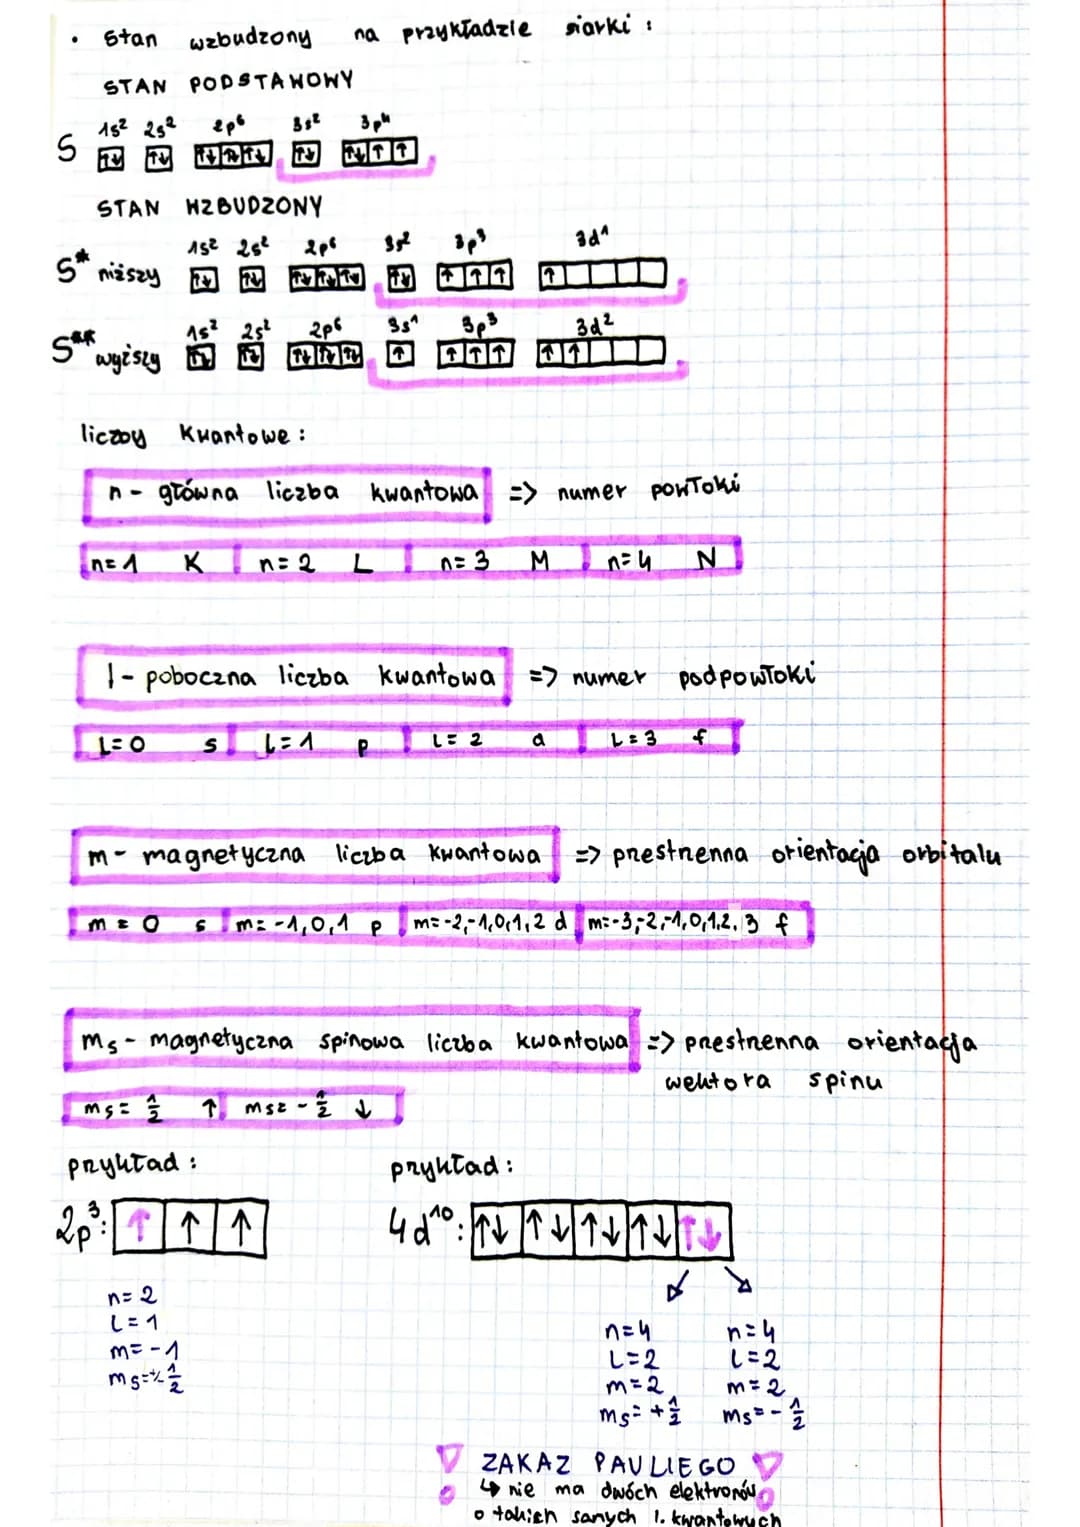 • Stan wzbudzony na przykładzie siarki :
STAN PODSTAWOWY
1s² 2s² 2p⁶ 3s² 3p⁴
S ↑↓ ↑↓ ↑↓ ↑↓ ↑↓ ↑↓ ↑↓ ↑ ↑
STAN WZBUDZONY
1s² 2s² 2p⁶ 3s² 3p³ 3d¹
S* niższy ↑↓ ↑↓ ↑↓ ↑↓ ↑↓ ↑↓ ↑ ↑ ↑ ↑
1s² 2s² 2p⁶ 3s¹ 3p³ 3d²
S** wyższy ↑↓ ↑↓ ↑↓ ↑↓ ↑↓ ↑ ↑ ↑ ↑ ↑ ↑
liczby kwantowe :
n - główna liczba kwantowa => numer powłoki
n= 1 K n= 2 L n= 3 M n= 4 N
l - poboczna liczba kwantowa => numer podpowłoki
l= 0 s l= 1 p l= 2 d l= 3 f
m - magnetyczna liczba kwantowa => przestrzenna orientacja orbitalu
m = 0 s m= -1,0,1 p m= -2,-1,0,1,2 d m= -3,-2,-1,0,1,2,3 f
ms - magnetyczna spinowa liczba kwantowa => przestrzenna orientacja
wektora spinu
ms= 1/2 ↑ ms= - 1/2 ↓
przykład : przykład :
2p³: ↑ ↑ ↑ 4d¹⁰: ↑↓ ↑↓ ↑↓ ↑↓ ↑↓
n= 2
l= 1
m= -1
ms=+1/2
n=4 n=4
l=2 l=2
m=2 m=2
ms= +1/2 ms= -1/2
! ZAKAZ PAULIEGO !
↳ nie ma dwóch elektronów
o takich samych l. kwantowych